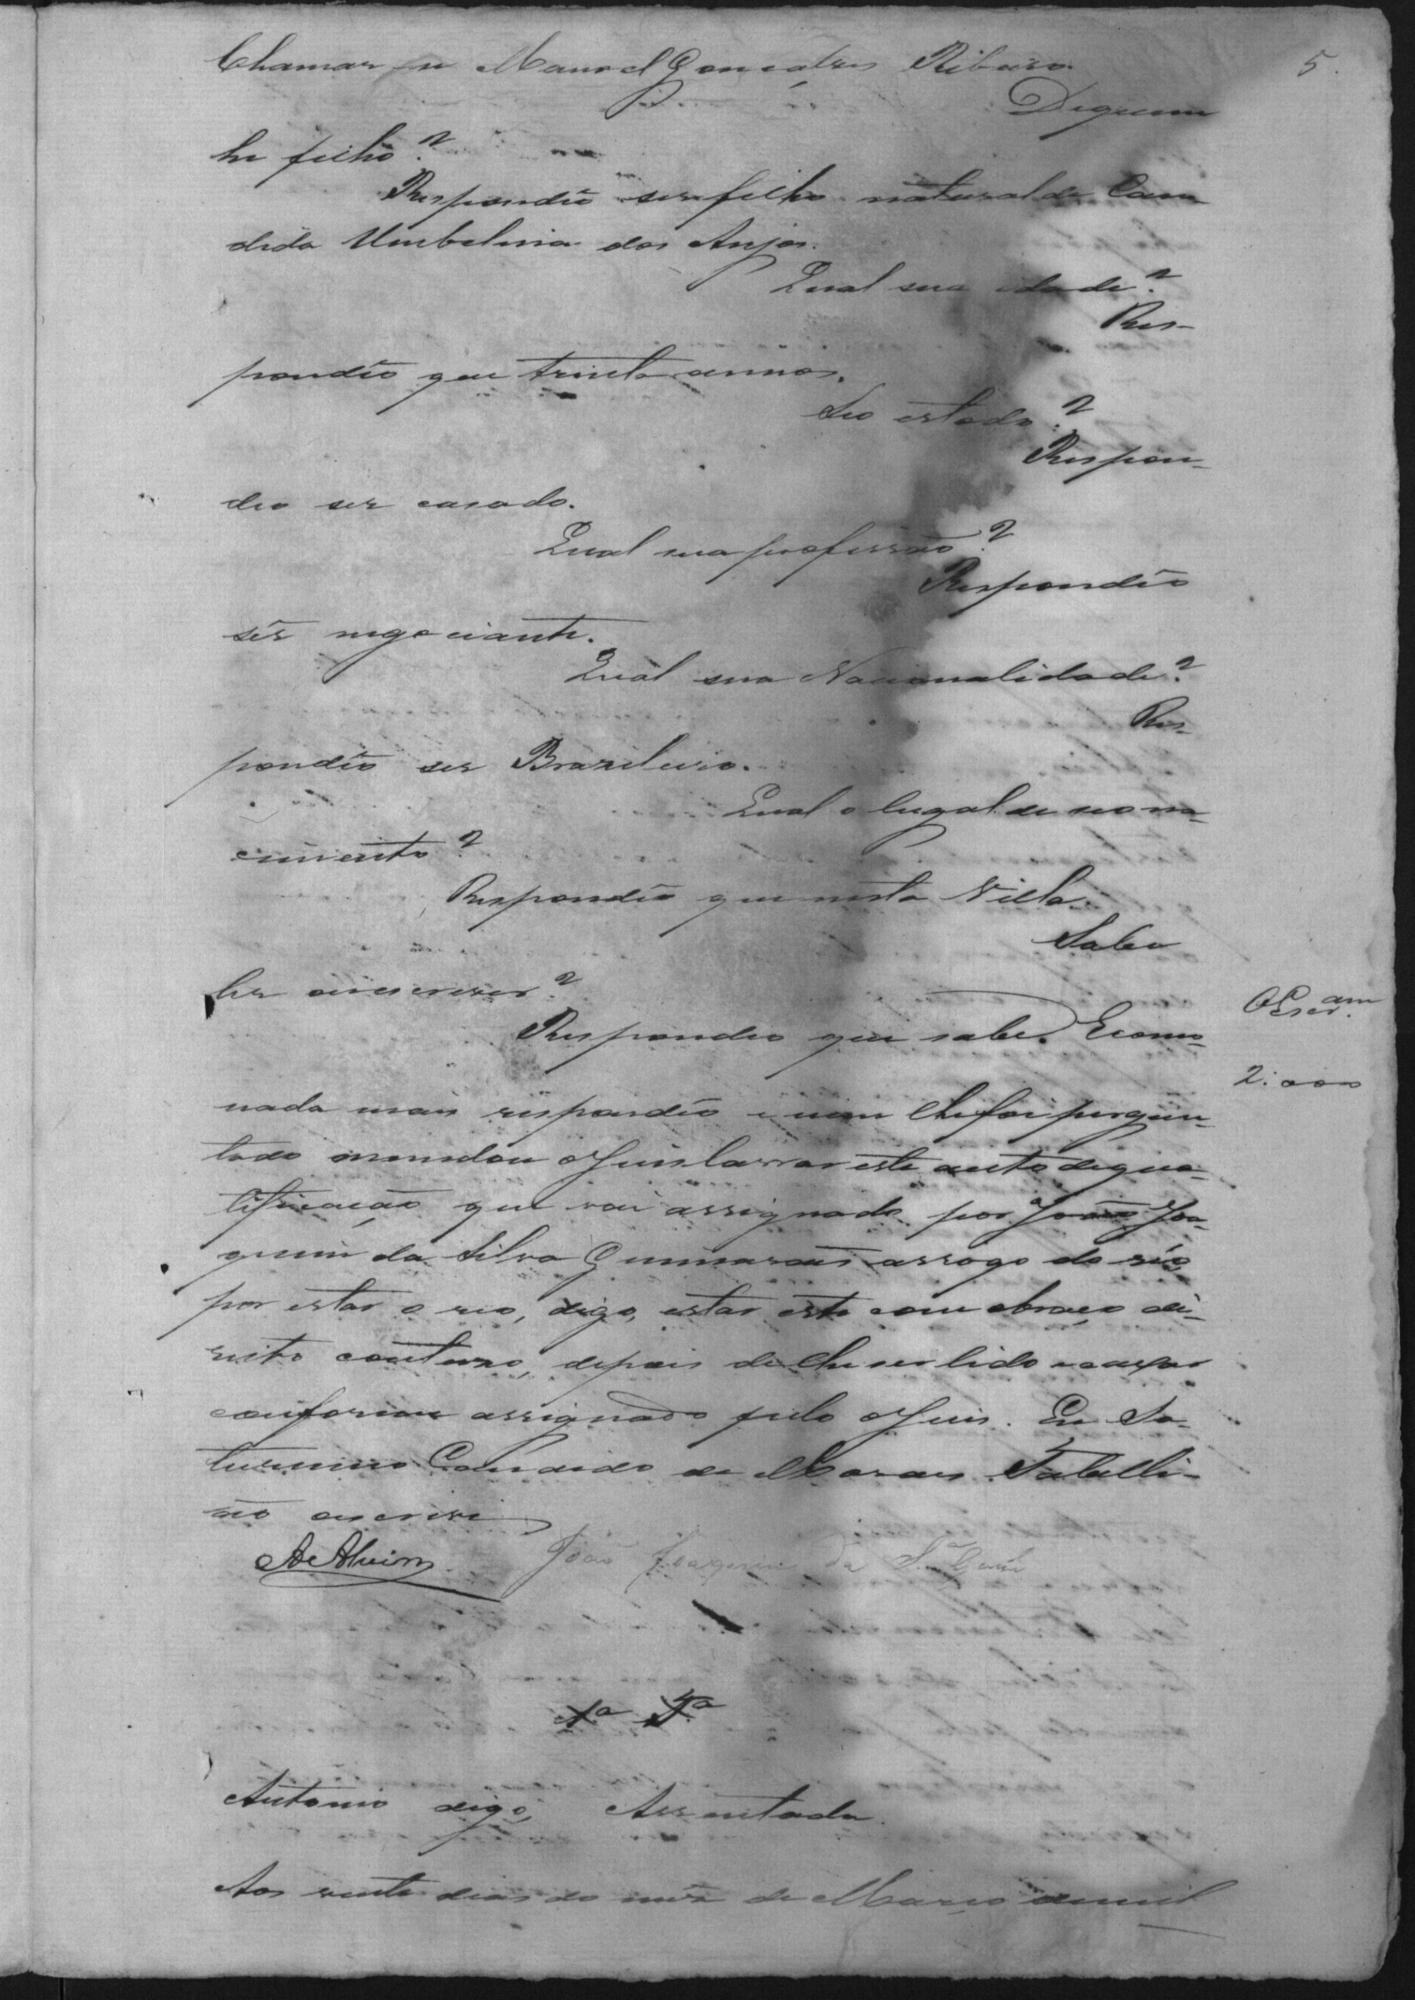 Chamar se Manoel Gonçalves Ribeiro.
5.
De quem
he filho?
Respondêo ser filho natural de Can
dida Umbelina dos Anjos.
Qual sua idade?
Res-
pondêo que trinta annos.
Seo estado?
Respon-
deo ser casado.
Qual sua profissão?
Respondêo
sêr negociante.
Qual sua Nacionalidade?
Res-
pondêo ser Brazileiro.
Qual o lugar de seo nas-
cimento?
Respondêo que nesta Villa.
Sabe
ler e escrever?
Respondeo que sabe. E como
O Escr.am
2:000
nada mais respondêo e nem lhe foi pergun-
tado mandou o Juis lavrar este auto de qua-
lificação que vai assignado por João Joa-
quim da Silva Guimarães a rogo do réo
por estar o reo, digo, estar este com o braço di-
reito contuso, depois de lhe ser lido e achar
conforme assignado pelo o Juis. Eu Sa-
turnino Candido de Moraes Tabelli-
ão escrivi
A e Alvim João Joaquim da S.a Guim.
1a Ta
Antonio digo, Assentada
Aos vinte dias do mês de Março de mil